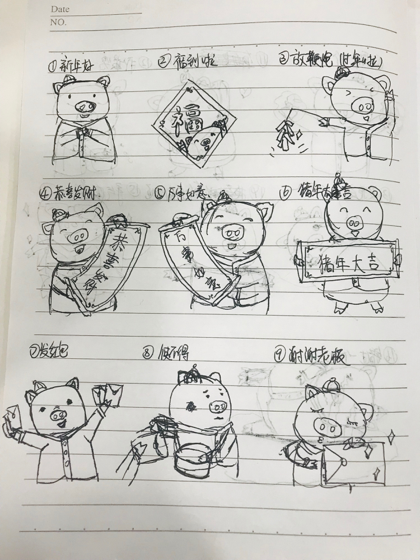 Date
NO.
①新年好
②福到啦
③放鞭炮（过年啦）
福
④恭喜发财
⑤万事如意
⑥猪年大吉
恭喜发财
万事如意
猪年大吉
⑦发红包
⑧
⑨谢谢老板